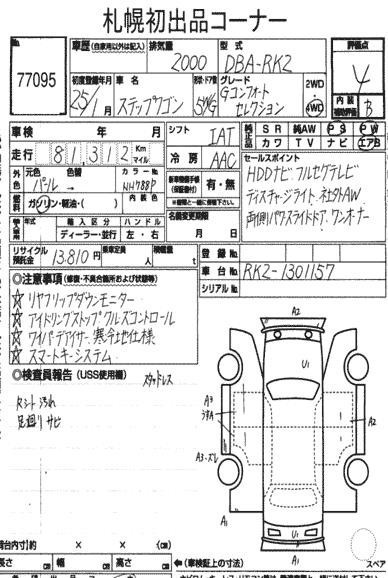 札幌初出品コーナー
No.
77095
車歴(自家用以外は記入) 排気量 型式
2000 DBA-RK2
評価点
4
内装補助評価 B
初度登録年月 車名 形状・ドア数 グレード
25/1月 ステップワゴン 5/WG Gコンフォートセレクション
2WD
4WD
車検 年 月
シフト IAT
純正品 SR 純AW PS PW
カワ TV ナビ エアB
走行 81,312 Km マイル
冷房 AAC
セールスポイント
HDDナビ フルセグテレビ
ディスチャージライト 社外AW
両側パワースライドドア ワンオーナー
外色 元色 色替 カラーNo.
パール NH788P
内装色
燃料 ガソリン・軽油・( )
新車時保証書(保証書付) 有・無
名義変更期限
月 日
輸入車 年式 輸入区分 ハンドル
ディーラー・並行 左・右
リサイクル預託金 13,810円
乗車定員 人
積載量 t
登録No.
車台No. RK2-1301157
シリアルNo.
◎注意事項(修復・不具合箇所および状態等)
☆ リヤフリップダウンモニター
☆ アイドリングストップ クルーズコントロール
☆ ワイパーデアイサー 寒冷地仕様
☆ スマートキーシステム
◎検査員報告(USS使用欄) スタッドレス
Rシート汚れ
足廻りサビ
A2
U1
A3
うすA
A2
A3・ズレ
A1
U1
A1
A1
スペア
荷台内寸 約 × × (cm)
長さ cm 幅 cm 高さ cm
←(車検証上の寸法)